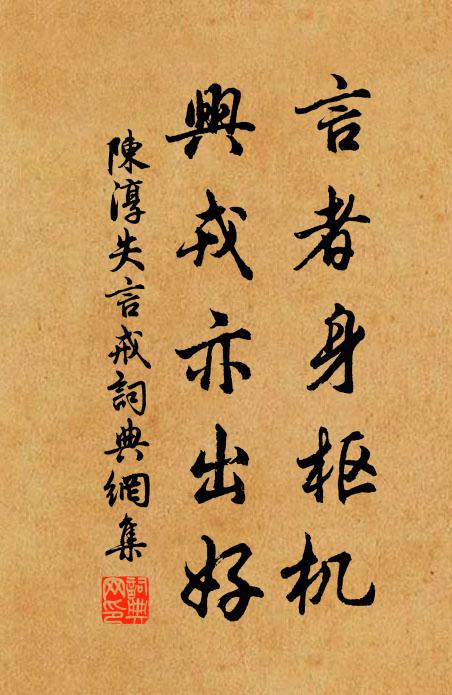 言者身枢机
興戎亦出好
陳淳失言戒詞典網集
詞典網印